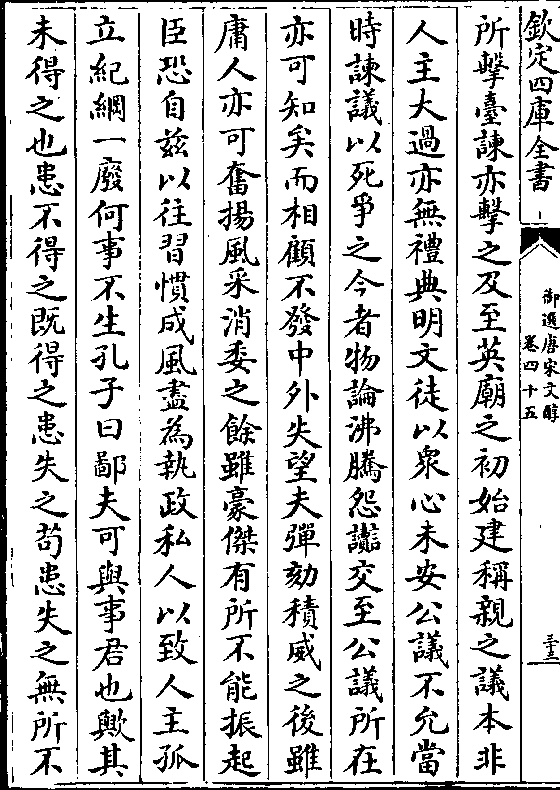 欽定四庫全書
御選唐宋文醇
卷四十五
三十三
所擊臺諫亦擊之及至英廟之初始建稱親之議本非
人主大過亦無禮典明文徒以衆心未安公議不允當
時諫議以死爭之今者物論沸騰怨讟交至公議所在
亦可知矣而相顧不發中外失望夫彈劾積威之後雖
庸人亦可奮揚風采消委之餘雖豪傑有所不能振起
臣恐自兹以往習慣成風盡為執政私人以致人主孤
立紀綱一廢何事不生孔子曰鄙夫可與事君也歟其
未得之也患不得之既得之患失之苟患失之無所不